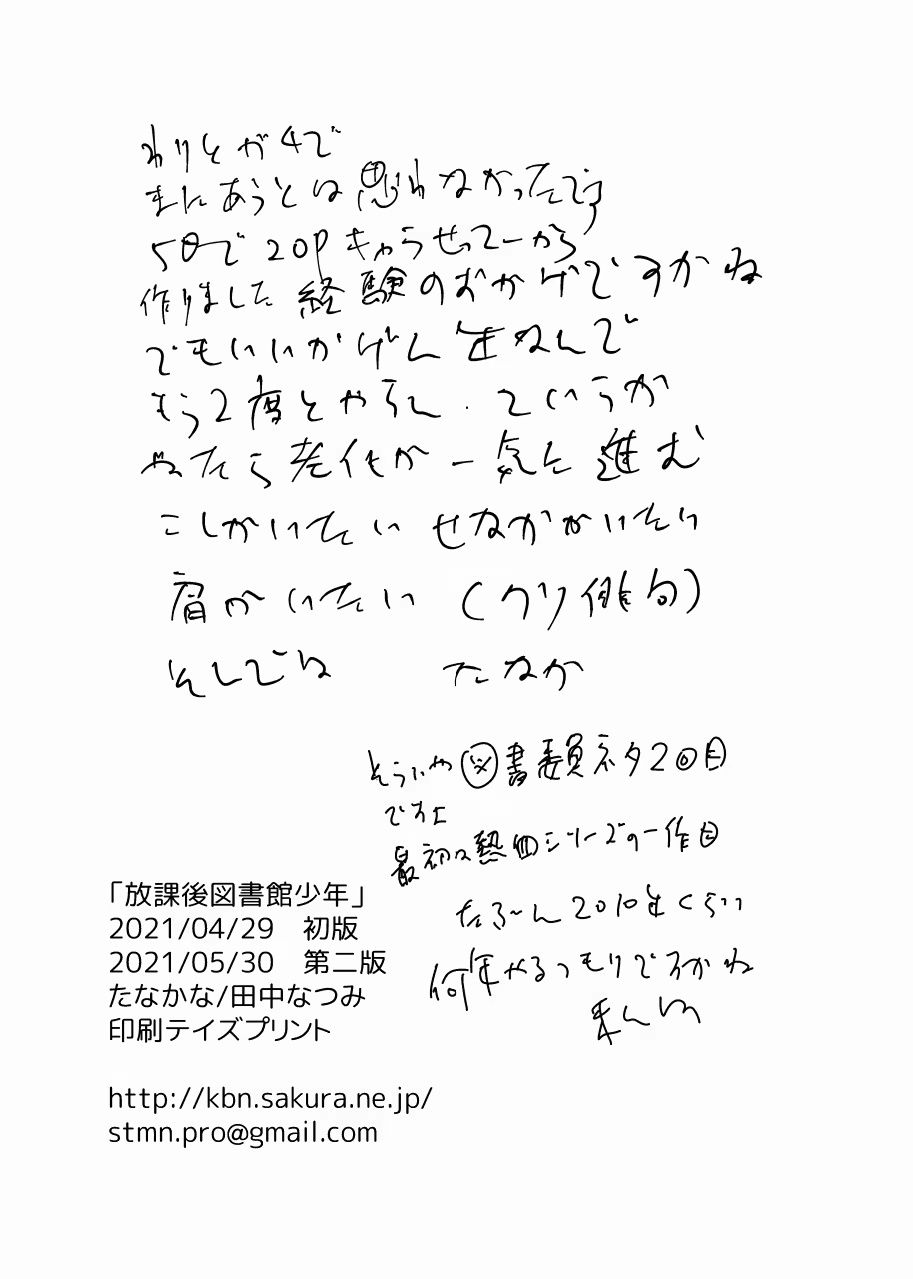 わりとガチで
まにあうとは思わなかったです
5日で20Pキャラせってーから
作りました 経験のおかげですかね
でもいいかげん年なんで
もう2度とやらん. ていうか
やたら老化が一気に進む
こしがいたい せなかがいたい
肩がいたい (クソ俳句)
そしでは たなか
そういや図書委員ネタ2回目
ですよ
最初は熱血シリーズの一作目
たぶーん2010年くらい
何年やるつもりですかね
「放課後図書館少年」
2021/04/29 初版
2021/05/30 第二版
たなかな/田中なつみ
印刷テイズプリント
http://kbn.sakura.ne.jp/
stmn.pro@gmail.com